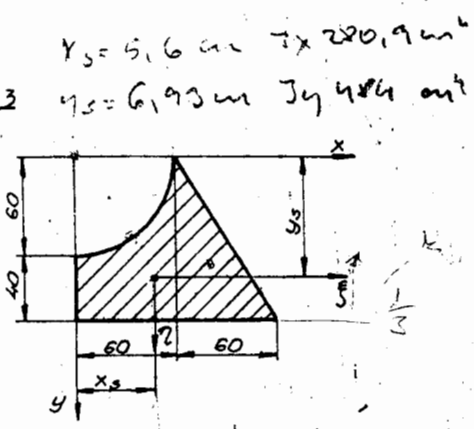 xs = 5,6 cm Jx 280,9 cm⁴
3 ys = 6,93 cm Jy 484 cm⁴
x
60
ys
ξ
40
1/3
60 η 60
xs
y